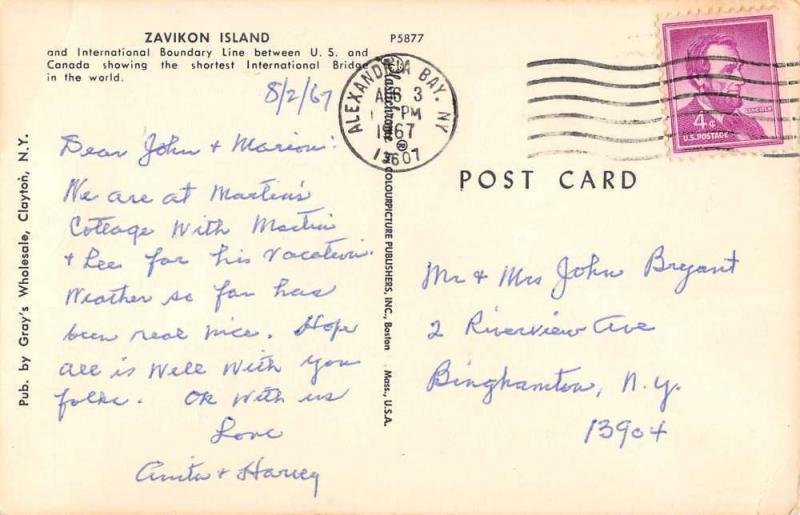 ZAVIKON ISLAND
and International Boundary Line between U. S. and
Canada showing the shortest International Bridge
in the world.
P5877
8/2/67
Dear John & Marion:
We are at Martin's
Cottage With Martin
& Lee for his Vacation.
Weather so far has
been real nice. Hope
all is Well With you
folks. OK With us
Love
Anita & Harvey
Pub. by Gray's Wholesale, Clayton, N.Y.
Plastichrome ®
COLOURPICTURE PUBLISHERS, INC., Boston Mass., U.S.A.
ALEXANDRIA BAY, NY
AUG 3
PM
1967
13607
LINCOLN
4¢
U.S. POSTAGE
POST CARD
Mr & Mrs John Bryant
2 Riverview Ave
Binghamton, N.Y.
13904